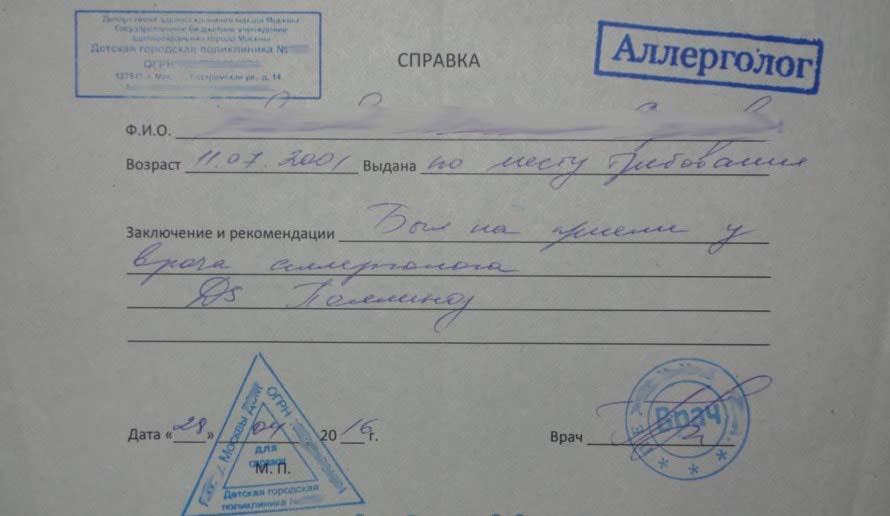 Департамент здравоохранения города Москвы
Государственное бюджетное учреждение
здравоохранения города Москвы
Детская городская поликлиника №
ОГРН
ул., д. 14
СПРАВКА
Аллерголог
Ф.И.О.
Возраст 11.07.2001 Выдана по месту требования
Заключение и рекомендации Был на приеме у
врача аллерголога
Ds Поллиноз
Дата «28» 04 2016 г.
Врач
М. П.
Москвы ДЗМ ОГРН
для
справок
Детская городская
поликлиника
Врач